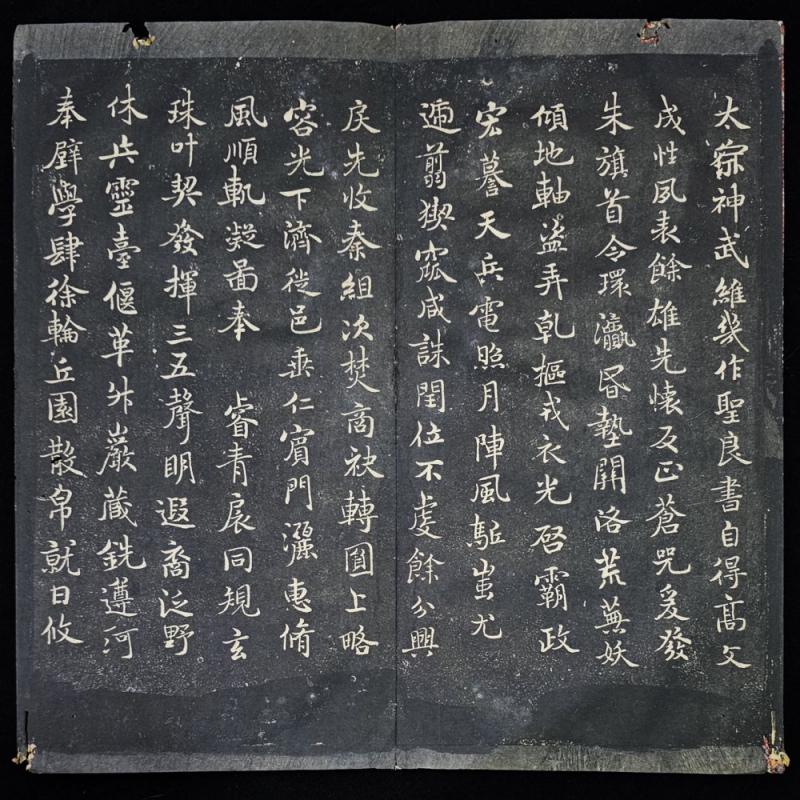 太宗神武維幾作聖良書自得高文
成性夙表餘雄先懷反正蒼兕爰發
朱旗首令環瀛昏墊關洛荒蕪妖
傾地軸盜弄乾樞戎衣光啓霸政
宏謩天兵電照月陣風駈蚩尤
遞翦猰窳咸誅閏位不虔餘分興
戾先收秦組次焚商袂轉圓上略
容光下濟徙邑垂仁賓門灑惠脩
風順軌凝圖奉 睿青扆同規玄
珠叶契發揮三五聲明遐裔泛野
休兵靈臺偃革升巖藏銑遵河
奉璧學肆徐輪丘園散帛就日攸